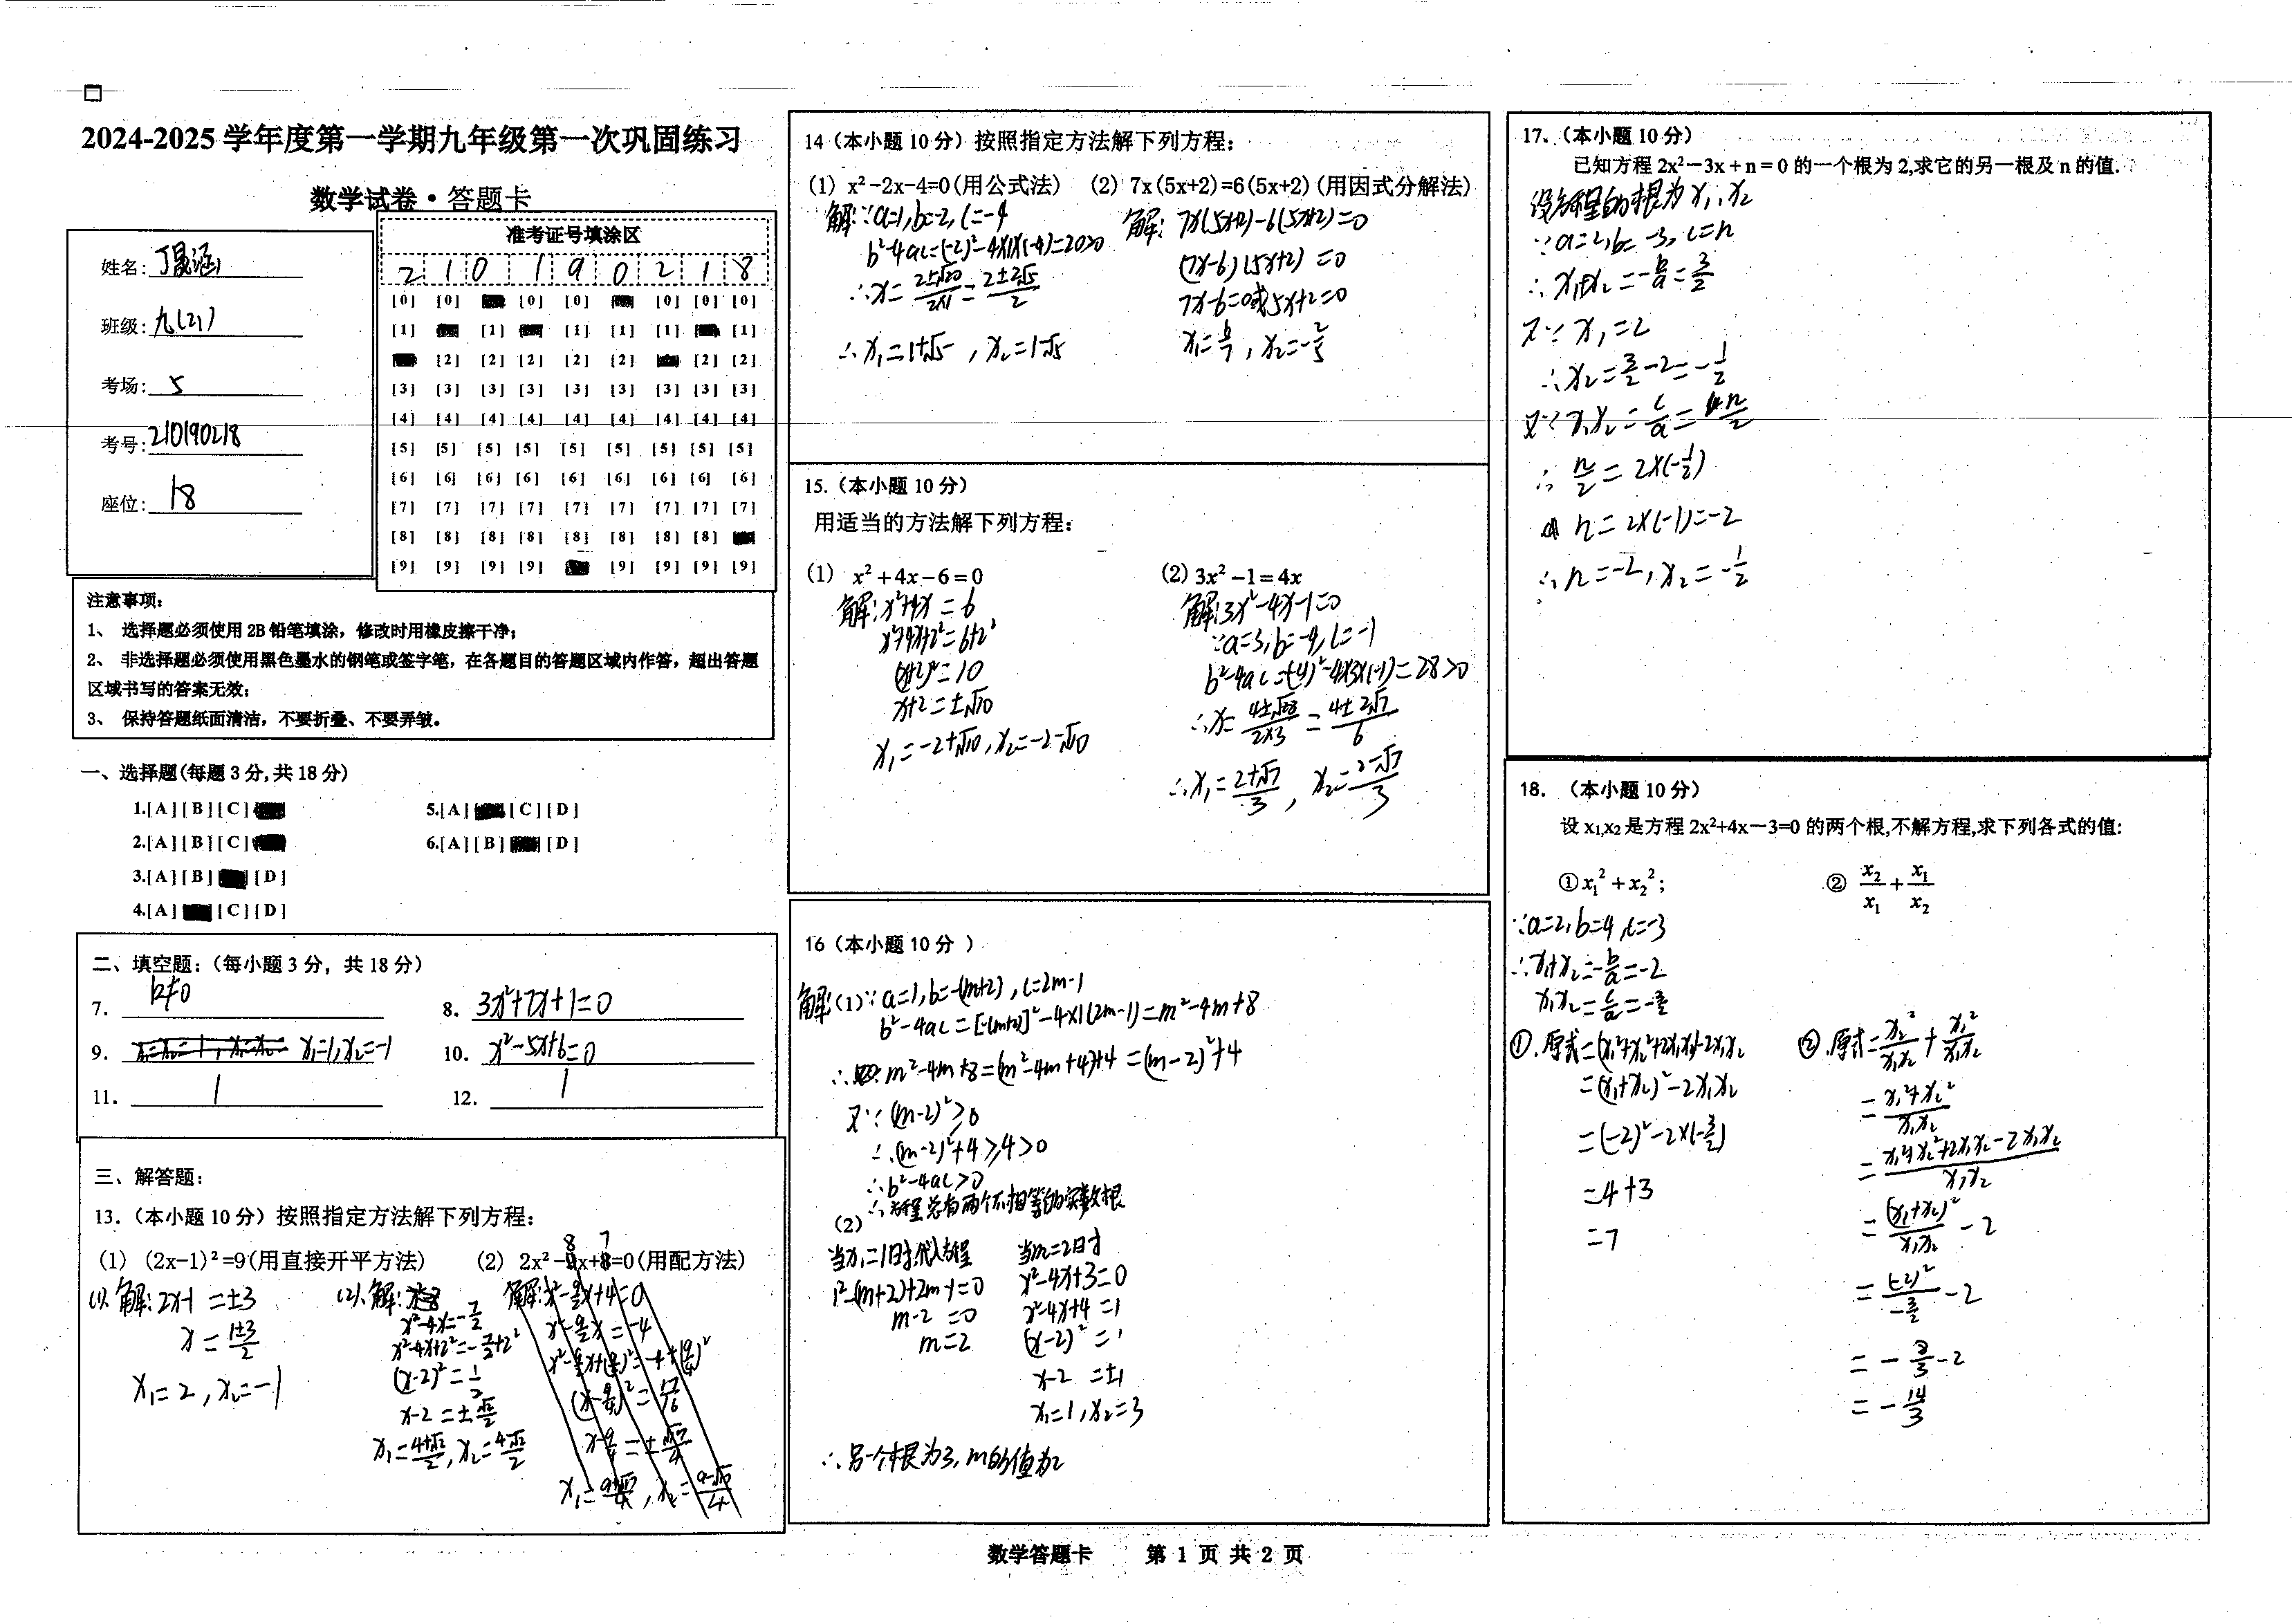 2024-2025 学年度第一学期九年级第一次巩固练习
数学试卷·答题卡
姓名:
班级: 九(21)
考场: 5
考号: 210190218
座位: 18
准考证号填涂区
2 1 0 1 9 0 2 1 8
[0] [0] [0] [0] [0] [0] [0]
[1] [1] [1] [1] [1] [1]
[2] [2] [2] [2] [2] [2] [2]
[3] [3] [3] [3] [3] [3] [3] [3] [3]
[4] [4] [4] [4] [4] [4] [4] [4] [4]
[5] [5] [5] [5] [5] [5] [5] [5] [5]
[6] [6] [6] [6] [6] [6] [6] [6] [6]
[7] [7] [7] [7] [7] [7] [7] [7] [7]
[8] [8] [8] [8] [8] [8] [8] [8]
[9] [9] [9] [9] [9] [9] [9] [9]
注意事项:
1、 选择题必须使用 2B 铅笔填涂，修改时用橡皮擦干净;
2、 非选择题必须使用黑色墨水的钢笔或签字笔，在各题目的答题区域内作答，超出答题
区域书写的答案无效;
3、 保持答题纸面清洁，不要折叠、不要弄皱。
一、选择题(每题 3 分,共 18 分)
1.[A][B][C]
5.[A] [C][D]
2.[A][B][C]
6.[A][B] [D]
3.[A][B] [D]
4.[A] [C][D]
二、填空题:（每小题 3 分，共 18 分）
7. k≠0
8. 3x²+7x+1=0
9. x₁=1,x₂=-1
10. x²-5x+6=0
11. 1
12. 1
三、解答题:
13.（本小题 10 分）按照指定方法解下列方程:
(1) (2x-1)²=9(用直接开平方法)
(2) 2x²-8x+7=0(用配方法)
(1).解:2x-1=±3
x=(1±3)/2
x₁=2,x₂=-1
(2).解:
x²-4x=-7/2
x²-4x+2²=-7/2+2²
(x-2)²=1/2
x-2=±√2/2
x₁=(4+√2)/2,x₂=(4-√2)/2
解:x²-9/2x+4=0
x²-9/2x=-4
14（本小题 10 分）按照指定方法解下列方程:
(1) x²-2x-4=0(用公式法)
(2) 7x(5x+2)=6(5x+2)(用因式分解法)
解:∵a=1,b=-2,c=-4
b²-4ac=(-2)²-4×1×(-4)=20>0
∴x=(2±√20)/(2×1)=(2±2√5)/2
∴x₁=1+√5，x₂=1-√5
解:7x(5x+2)-6(5x+2)=0
(7x-6)(5x+2)=0
7x-6=0或5x+2=0
x₁=6/7，x₂=-2/5
15.（本小题 10 分）
用适当的方法解下列方程:
(1) x²+4x-6=0
(2) 3x²-1=4x
解:x²+4x=6
x²+4x+2²=6+2²
(x+2)²=10
x+2=±√10
x₁=-2+√10,x₂=-2-√10
解:3x²-4x-1=0
∵a=3,b=-4,c=-1
b²-4ac=(-4)²-4×3×(-1)=28>0
∴x=(4±√28)/(2×3)=(4±2√7)/6
∴x₁=(2+√7)/3，x₂=(2-√7)/3
16（本小题 10 分 ）
解:(1)∵a=1,b=-(m+2),c=2m-1
b²-4ac=[-(m+2)]²-4×1(2m-1)=m²-4m+8
∴m²-4m+8=(m²-4m+4)+4=(m-2)²+4
又∵(m-2)²≥0
∴(m-2)²+4≥4>0
∴b²-4ac>0
∴方程总有两个不相等的实数根
(2)
当x₁=1时,代入方程
1²-(m+2)+2m-1=0
m-2=0
m=2
当m=2时
x²-4x+3=0
x²-4x+4=1
(x-2)²=1
x-2=±1
x₁=1,x₂=3
∴另一个根为3,m的值为2
17.（本小题 10 分）
已知方程 2x²-3x+n=0 的一个根为 2,求它的另一根及 n 的值.
设方程的根为x₁、x₂
∵a=2,b=-3,c=n
∴x₁+x₂=-b/a=3/2
又∵x₁=2
∴x₂=3/2-2=-1/2
又∵x₁x₂=c/a=n/2
∴n/2=2×(-1/2)
n=2×(-1)=-2
∴n=-2,x₂=-1/2
18. （本小题 10 分）
设 x₁,x₂ 是方程 2x²+4x-3=0 的两个根,不解方程,求下列各式的值:
①x₁²+x₂²;
② x₂/x₁+x₁/x₂
∵a=2,b=4,c=-3
∴x₁+x₂=-b/a=-2
x₁x₂=c/a=-3/2
①.原式=(x₁²+x₂²+2x₁x₂)-2x₁x₂
=(x₁+x₂)²-2x₁x₂
=(-2)²-2×(-3/2)
=4+3
=7
②.原式=x₂²/x₁x₂+x₁²/x₁x₂
=(x₁²+x₂²)/x₁x₂
=(x₁²+x₂²+2x₁x₂-2x₁x₂)/x₁x₂
=(x₁+x₂)²/x₁x₂-2
=(-2)²/(-3/2)-2
=-8/3-2
=-14/3
数学答题卡 第 1 页 共 2 页